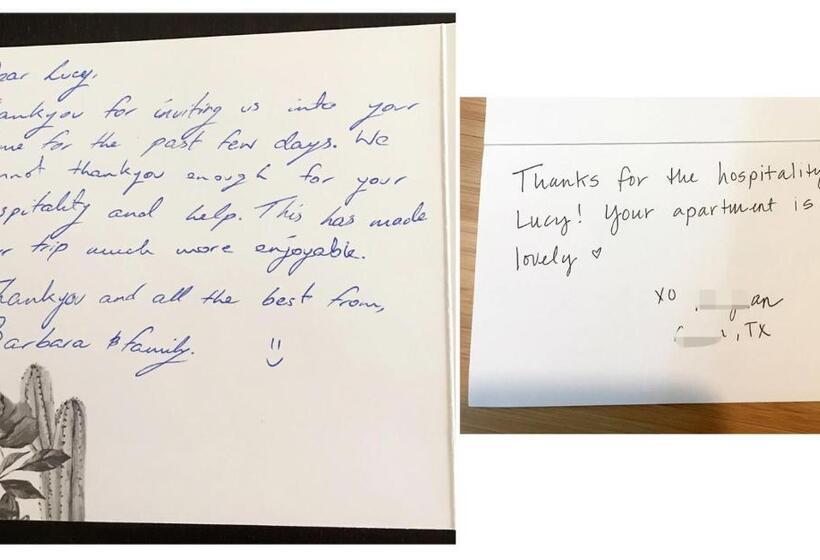 ear Lucy,
ankyou for inviting us into your
me for the past few days. We
nnot thankyou enough for your
spitality and help. This has made
r trip much more enjoyable.
hankyou and all the best from,
Barbara & family.
Thanks for the hospitality
Lucy! Your apartment is
lovely
xo an
, TX